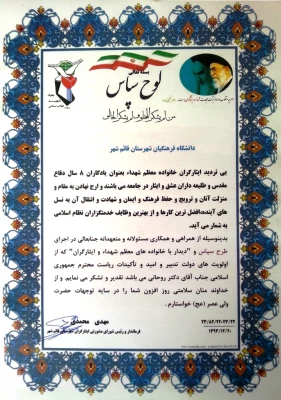 بسمه تعالی
لوح سپاس
من لم یشکر المخلوق لم یشکر الخالق
دانشگاه فرهنگیان شهرستان قائم شهر
بی تردید ایثارگران خانواده معظم شهداء بعنوان یادگاران ۸ سال دفاع
مقدس و طلیعه داران عشق و ایثار در جامعه می باشند و ارج نهادن به مقام و
منزلت آنان و ترویج و حفظ فرهنگ و ایمان و شهادت و انتقال آن به نسل
های آینده،افضل ترین کارها و از بهترین وظایف خدمتگزاران نظام اسلامی به
شمار می آید.
بدینوسیله از همراهی و همکاری مسئولانه و متعهدانه جنابعالی در اجرای
طرح سپاس و "دیدار با خانواده های معظم شهداء و ایثارگران" که از
اولویت های دولت تدبیر و امید و تأکیدات ریاست محترم جمهوری
اسلامی جناب آقای دکتر روحانی می باشد تقدیر و تشکر می نمایم و از
خداوند منان سلامتی روز افزون شما را در سایه توجهات حضرت
ولی عصر (عج) خواستارم.
مهدی محمدی
فرماندار و رئیس شورای مشورتی ایثارگران شهرستان قائم شهر